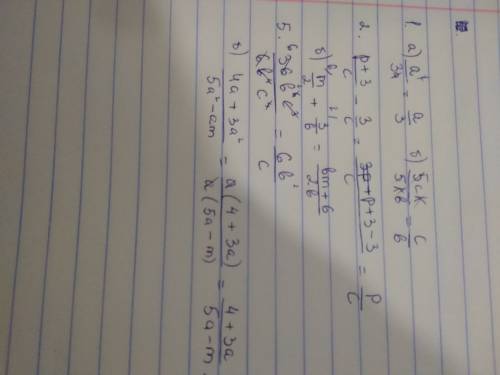 1. а) a²/3a = a/3 б) 5cк/5кb = c/b
2. p+3/c - 3/c = p+3-3/c = p/c
б) m/2 + 3/b = bm+6/2b
5. 36b⁴c³/6b²c⁴ = 6b²/c
в) 4a+3a²/5a²-am = a(4+3a)/a(5a-m) = 4+3a/5a-m